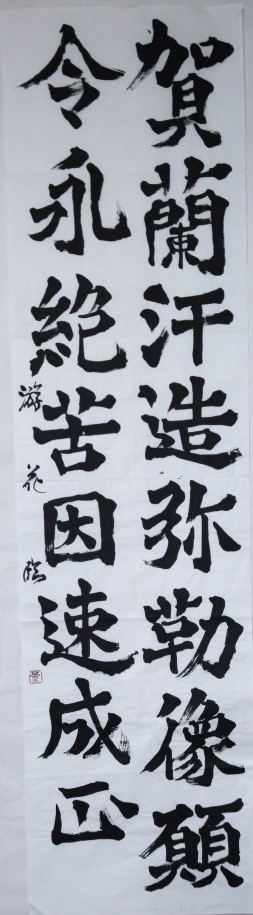 賀蘭汗造弥勒像願
令永絕苦因速成正
游花臨